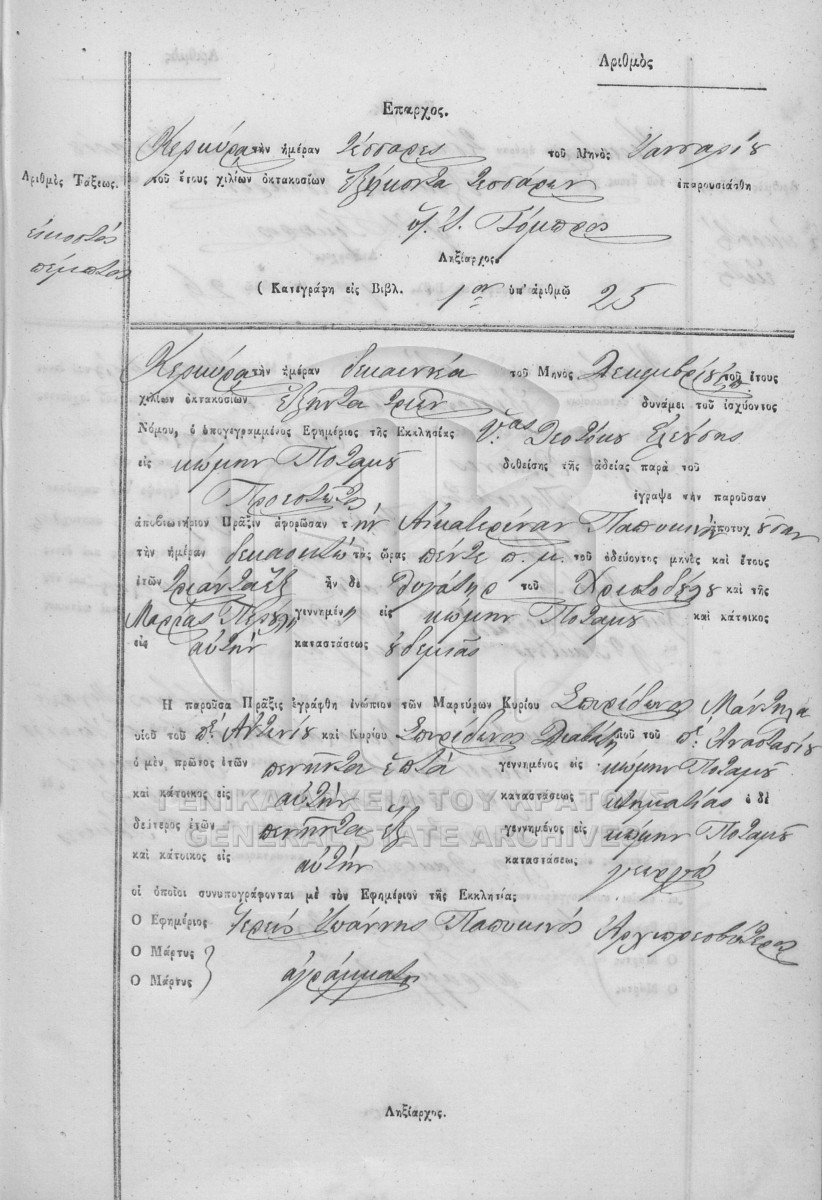 Ἀριθμὸς
Ἔπαρχος.
Κερκύρα τὴν ἡμέραν τέσσαρες τοῦ Μηνὸς Ἰανναρίου
Ἀριθμὸς Τάξεως.
τοῦ ἔτους χιλίων ὀκτακοσίων ἑξήκοντα τεσσάρων ἐπαρουσιάσθη
εἰκοστὸς
πέμπτος
Ληξίαρχος.
(Κατεγράφη εἰς Βιβλ. 1ον ὑπ' ἀριθμῷ 25
Κερκύρα τὴν ἡμέραν δεκαεννέα τοῦ Μηνὸς Δεκεμβρίου τοῦ ἔτους
χιλίων ὀκτακοσίων ἑξῆντα τριῶν δυνάμει τοῦ ἰσχύοντος
Νόμου, ὁ ὑπογεγραμμένος Ἐφημέριος τῆς Ἐκκλησίας Θεοτόκου Ἐλεούσης
εἰς κώμην Ποταμοῦ δοθείσης τῆς ἀδείας παρὰ τοῦ
Προεστῶτος ἔγραψε τὴν παροῦσαν
ἀποβιωτήριον Πρᾶξιν ἀφορῶσαν τὴν Αἰκατερίναν Παπυκινοῦ ἀποτυχοῦσαν
τὴν ἡμέραν δεκαοκτὼ τὰς ὥρας πέντε π. μ. τοῦ ὁδεύοντος μηνὸς καὶ ἔτους
ἐτῶν τριάντα ἓξ ἦν δὲ θυγάτηρ τοῦ Χριστοδούλου καὶ τῆς
Μαρίας γεννημένη εἰς κώμην Ποταμοῦ καὶ κάτοικος
εἰς αὐτὴν καταστάσεως οὐδεμιᾶς
Ἡ παροῦσα Πρᾶξις ἐγράφθη ἐνώπιον τῶν Μαρτύρων Κυρίου Σπυρίδωνος Μάντηλα
υἱοῦ τοῦ πτ Ἀντωνίου καὶ Κυρίου Σπυρίδωνος υἱοῦ τοῦ πτ Ἀναστασίου
ὁ μὲν πρῶτος ἐτῶν πενῆντα ἑπτά γεννημένος εἰς κώμην Ποταμοῦ
καὶ κάτοικος εἰς αὐτὴν καταστάσεως κτηματίας ὁ δὲ
δεύτερος ἐτῶν πενῆντα ἓξ γεννημένος εἰς κώμην Ποταμοῦ
καὶ κάτοικος εἰς αὐτήν καταστάσεως γεωργοῦ
οἱ ὁποῖοι συνυπογράφονται μὲ τὸν Ἐφημέριον τῆς Ἐκκλησίας
Ὁ Ἐφημέριος Ἱερεὺς Ἰωάννης Παπυκινός Ἀρχιπρεσβύτερος
Ὁ Μάρτυς
Ὁ Μάρτυς ἀγράμματοι
Ληξίαρχος.
ΓΕΝΙΚΑ ΑΡΧΕΙΑ ΤΟΥ ΚΡΑΤΟΥΣ
GENERAL STATE ARCHIVES